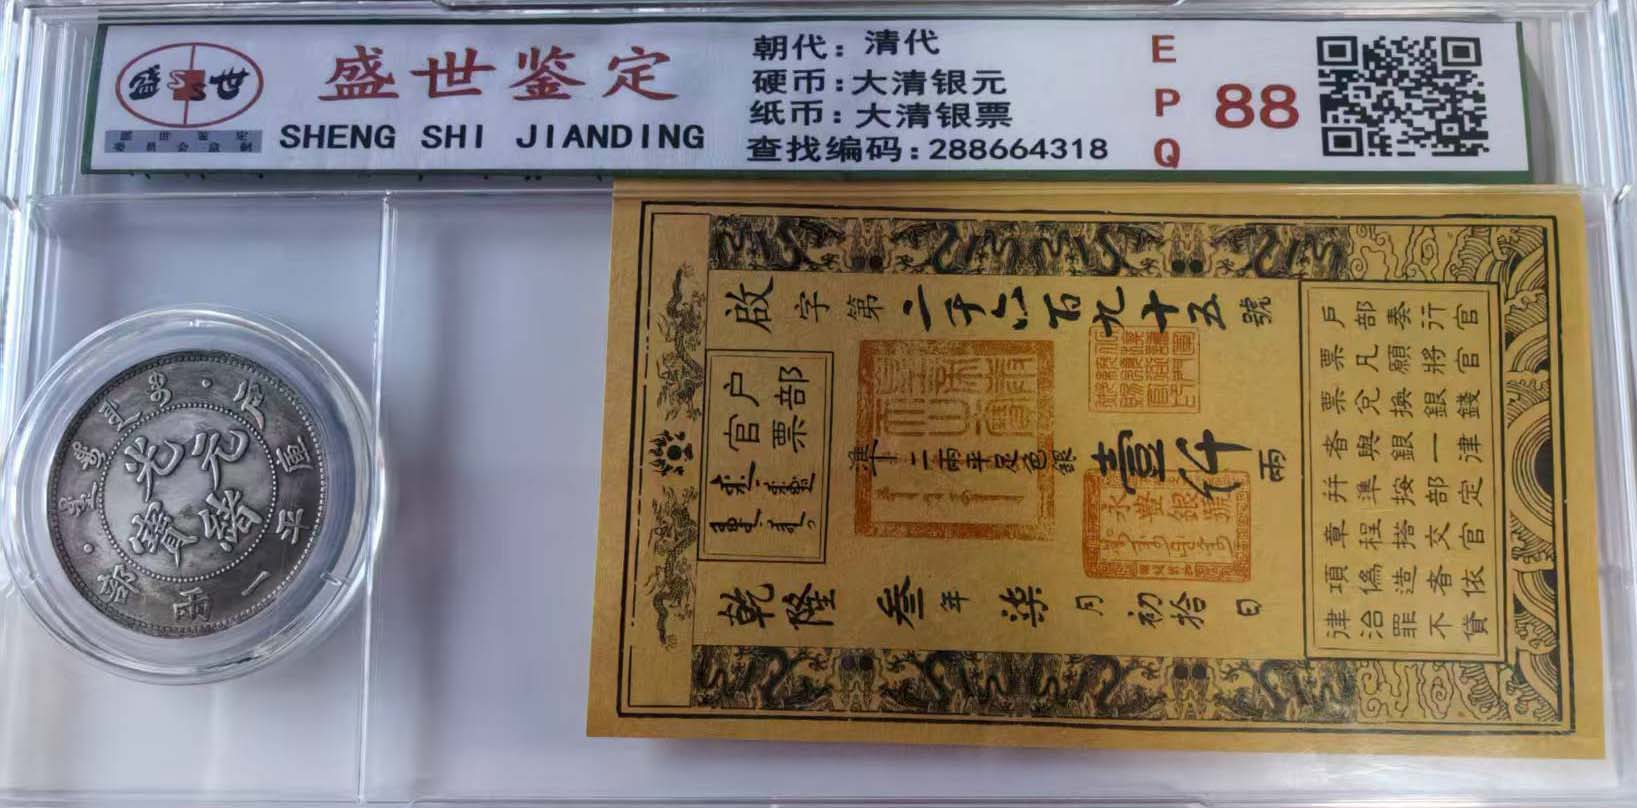 盛世
盛世鉴定
SHENG SHI JIANDING
朝代：清代
硬币：大清银元
纸币：大清银票
查找编码：288664318
E
P
Q
88
光緒元寶
庫平一兩
户部
啟字第二千六百九十五號
户部
官票
準二兩平足色銀壹仟兩
永豐銀號
乾隆叁年柒月初拾日
户部奏行官
票凡願將官
票兌換銀錢
者與銀一律
并準按部定
章程搭交官
項偽造者依
律治罪不貸